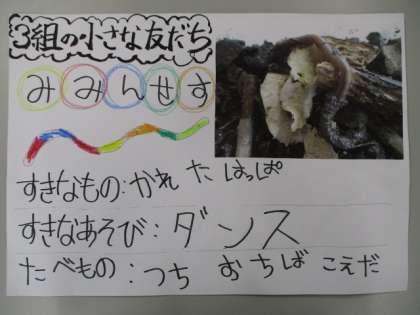 3組の小さな友だち
みみんせす
すきなもの：かれたはっぱ
すきなあそび：ダンス
たべもの：つち おちば こえだ